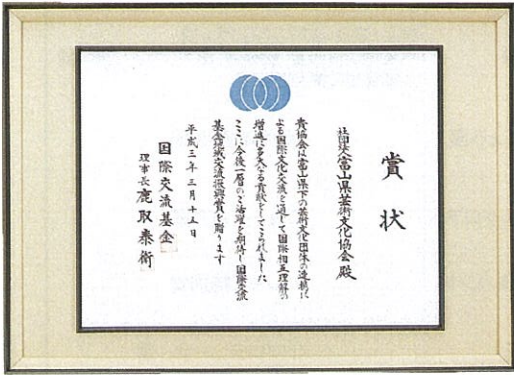 賞状
社団法人富山県芸術文化協会殿
貴協会は富山県下の芸術文化団体の連携に
よる国際文化交流を通して国際相互理解の
増進に多大なる貢献をしてこられました
ここに今後一層のご活躍を期待し国際交流
基金地域交流振興賞を贈ります
平成三年三月十五日
国際交流基金
理事長鹿取泰衛